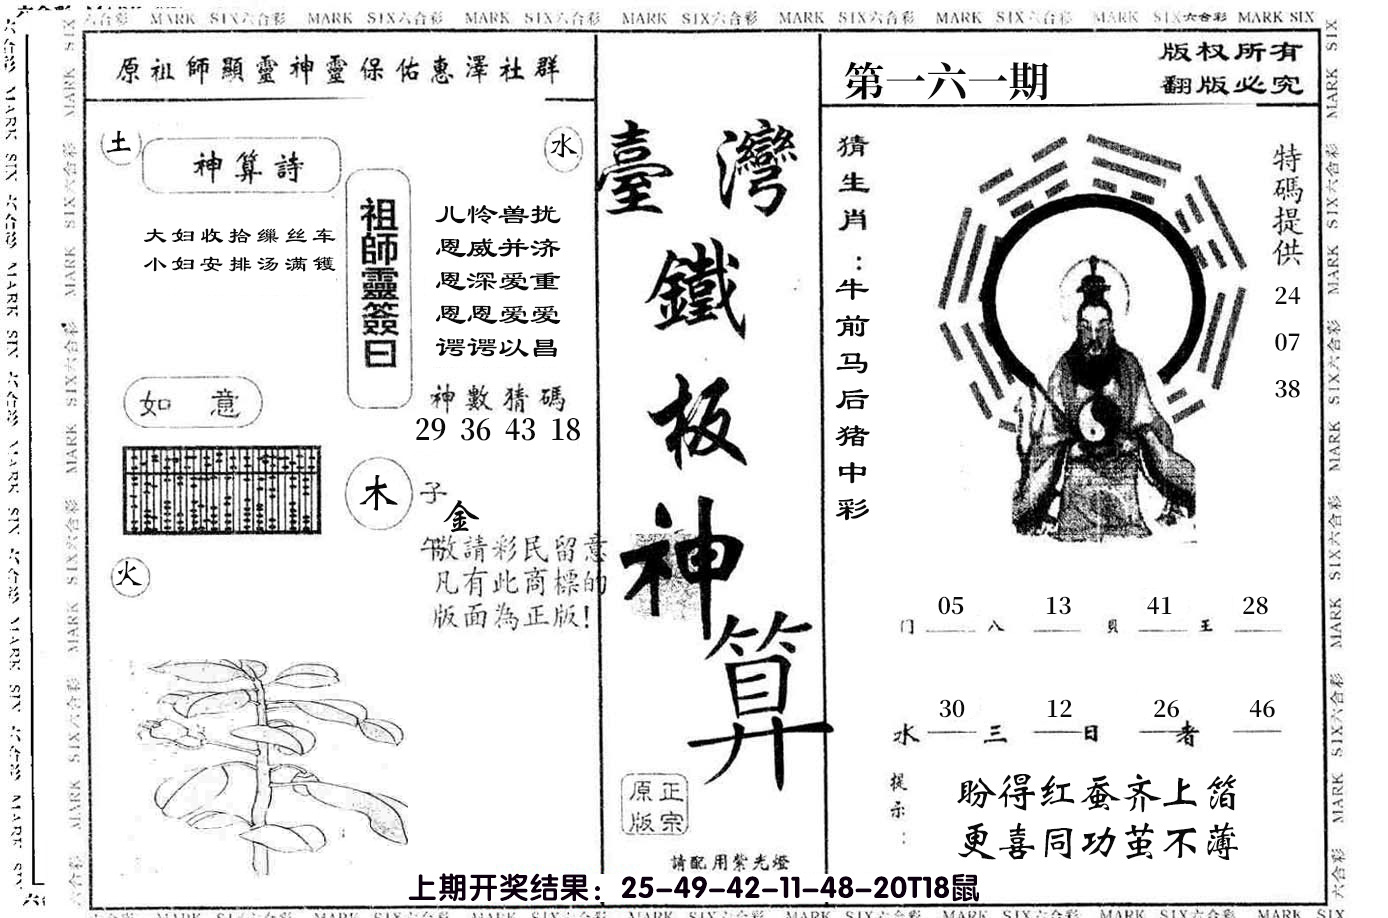 六合彩 MARK SIX六合彩 MARK SIX六合彩 MARK SIX六合彩 MARK SIX六合彩 MARK SIX六合彩 MARK SIX六合彩 MARK SIX六合彩 MARK SIX
原祖師顯靈神靈保佑惠澤社群
土
神算詩
水
大妇收拾缫丝车
小妇安排汤满镬
祖師靈簽曰
儿怜兽扰
恩威并济
恩深爱重
恩恩爱爱
谔谔以昌
神數猜碼
29 36 43 18
如 意
木
子
金
午
敬請彩民留意
凡有此商標的
版面為正版!
火
臺灣
鐵
板
神
算
正宗
原版
請配用紫光燈
第一六一期
版权所有
翻版必究
猜生肖:牛前马后猪中彩
特碼提供
24
07
38
05 13 41 28
门 八 貝 王
30 12 26 46
水 三 日 者
提示:
盼得红蚕齐上箔
更喜同功茧不薄
上期开奖结果：25-49-42-11-48-20T18鼠